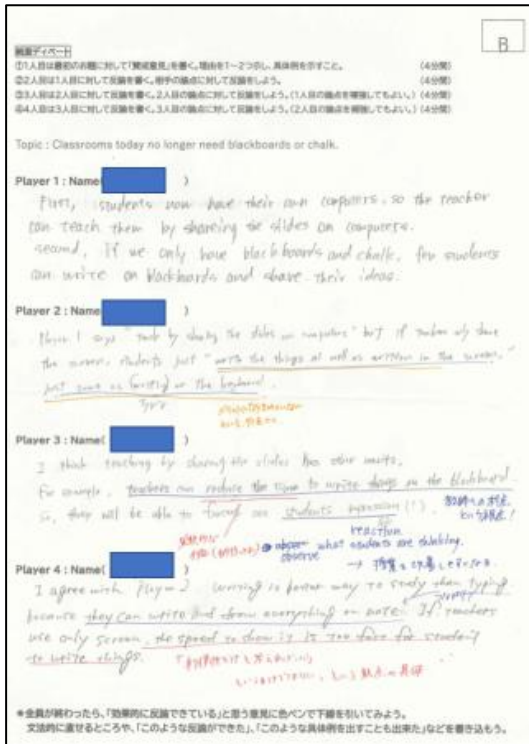 B
紙面ディベート
①1人目は最初のお題に対して「賛成意見」を書く。理由を1~2つ示し、具体例を示すこと。 (4分間)
②2人目は1人目に対して反論を書く。相手の論点に対して反論をしよう。 (4分間)
③3人目は2人目に対して反論を書く。2人目の論点に対して反論をしよう。(1人目の論点を補強してもよい。) (4分間)
④4人目は3人目に対して反論を書く。3人目の論点に対して反論をしよう。(2人目の論点を補強してもよい。) (4分間)
Topic : Classrooms today no longer need blackboards or chalk.
Player 1 : Name( )
First, students now have their own computers, so the teacher
can teach them by sharing the slides on computers.
second, if we only have blackboards and chalk, few students
can write on blackboards and share their ideas.
Player 2 : Name( )
Player 1 says "teach by sharing the slides on computers" but if teachers only share
the screen, students just "write the things as well as written in the screen,"
just on the keyboard.
Player 3 : Name( )
I think teaching by sharing the slides has other merits.
For example, teachers can reduce the time to write things on the blackboard
so, they will be able to on students expression(!).
reaction
observe what students are thinking.
Player 4 : Name( )
I agree with Player 2 writing is better way to study than typing
because they can write and draw everything on note. If teachers
use only screen, the speed to show it is too fast for student
to write things.
*全員が終わったら、「効果的に反論できている」と思う意見に色ペンで下線を引いてみよう。
文法的に直せるところや、「このような反論ができた」、「このような具体例を出すことも出来た」などを書き込もう。